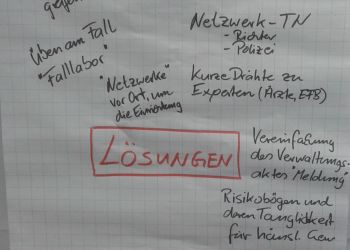 Üben am Fall
"Fallabor"
Netzwerk-TN
- Richter
- Polizei
"Netzwerke"
vor Ort, um
die
Kurze Drähte zu
Experten (Ärzte, EFB)
LÖSUNGEN
Vereinfaßung
des Verwaltungs-
aktes "Meldung"
Risikobögen und
deren Tauglichkeit
für häusl. Gew